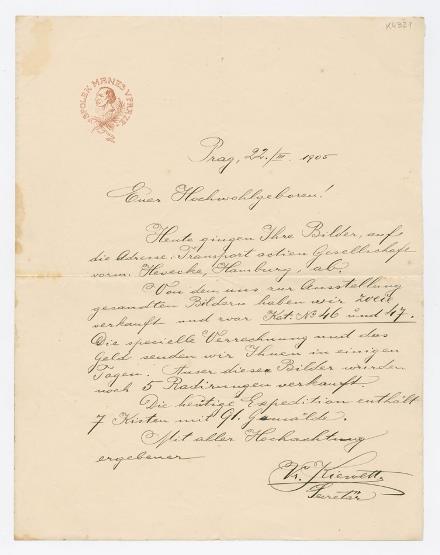 K4321
SPOLEK MANES V PRAZE
Prag, 22./III 1905
Euer Hochwohlgeboren!
Heute gingen Ihre Bilder, aufs
die Adresse: Transport actien Gesellschaft
vorm. Hevecke, Hamburg, ab.
Von dem uns zur Ausstellung
gesandten Bildern haben wir zwei
verkauft und zwar Kat. No 46 und 47.
Die specielle Verrechnung und das
Geld senden wir Ihnen in einigen
Tagen. Auser diesen Bilder wurden
noch 5 Radirungen verkauft
Die heutige Expedition enthält
7 Kisten mit 91. Gemälde.
Mit aller Hochachtung
ergebener
Secretär